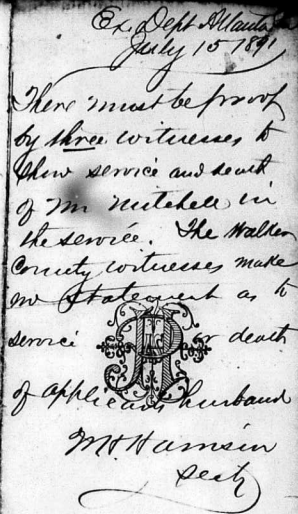 Ex. Dept Atlanta
July 15 1891
There must be proof
by three witnesses to
show service and death
of Mr Mitchell in
the service. The Walker
County witnesses make
no statement as to
service or death
of applicants husband
Secty